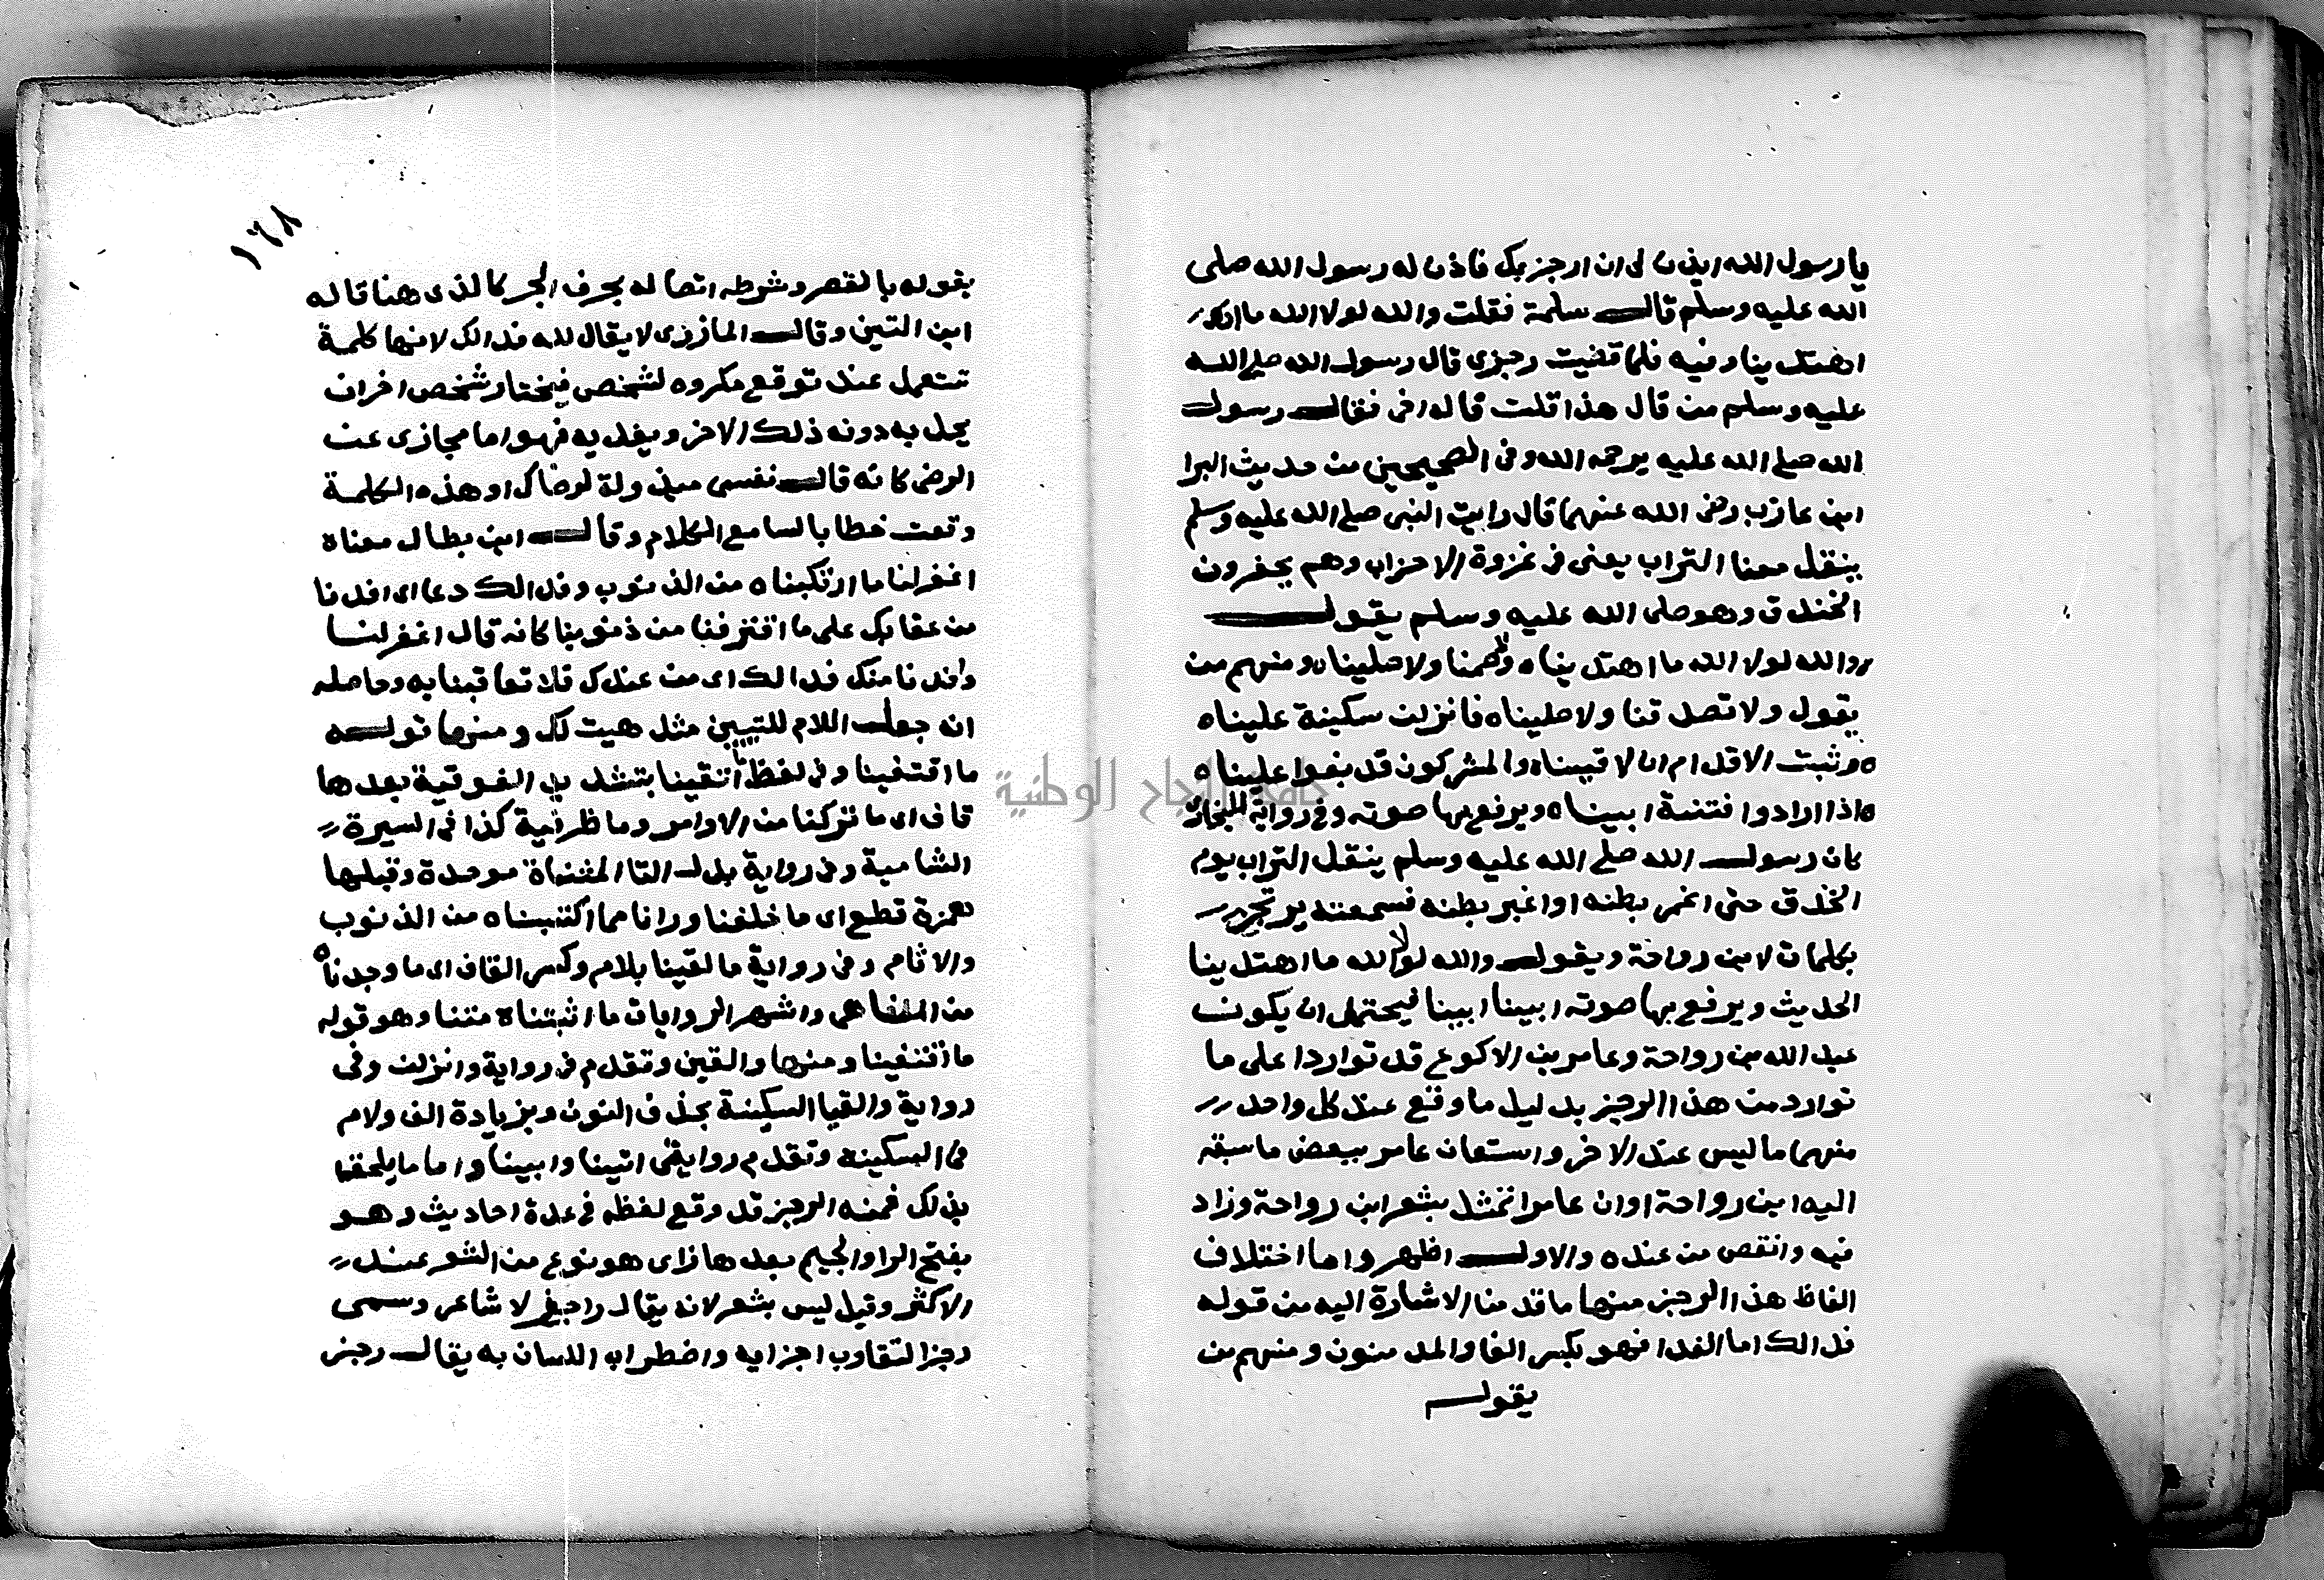 يا رسول الله ايذن لى ان ارجز بك فاذن له رسول الله صلى
الله عليه وسلم قال سلمة فقلت والله لولا الله ما
اهتدينا وفيه فلما قضيت رجزى قال رسول الله صلى الله
عليه وسلم من قال هذا قلت قاله اخى فقال رسول
الله صلى الله عليه يرحمه الله وفى الصحيحين من حديث البرا
ابن عازب رضى الله عنهما قال رايت النبى صلى الله عليه وسلم
ينقل معنا التراب يعنى فى غزوة الاحزاب وهم يحفرون
الخندق وهو صلى الله عليه وسلم يقول
والله لولا الله ما اهتديناه ولا صمنا ولا صليناه ومنهم من
يقول ولا تصدقنا ولا صليناه فانزلن سكينة عليناه
ه وثبت الاقدام ان لاقيناه والمشركون قد بغوا عليناه
ه اذا ارادوا فتنة ابيناه ويرفع بها صوته وفى رواية للبخارى
كان رسول الله صلى الله عليه وسلم ينقل التراب يوم
الخندق حتى اغمر بطنه او اغبر بطنه فسمعته يرتجز
بكلمات لابن رواحة ويقول والله لولا الله ما اهتدينا
الحديث ويرفع بها صوته ابينا ابينا فيحتمل ان يكون
عبد الله بن رواحة وعامر بن الاكوع قد تواردا على ما
توارد من هذا الرجز بدليل ما وقع عند كل واحد
منهما ما ليس عند الاخر واستعان عامر ببعض ما سبقه
اليه ابن رواحة او ان عامرا تمثل بشعر ابن رواحة وزاد
فيه وانقص من عنده والاول اظهر واما اختلاف
الفاظ هذا الرجز منها ما قدمنا الاشارة اليه من قوله
فدالك اما الفدا فهو بكسر الفا والمد منون ومنهم من
يقول
١٦٨
بقوله بالقصر وشرطه اتصاله بحرف الجر كالذى هنا قاله
ابن التين وقال المازرى لا يقال لله فدالك لانها كلمة
تستعمل عند توقع مكروه لشخص فيختار شخص اخر ان
يحل به دونه ذلك الاخر ويفديه فهو اما مجازى عن
الرضى كانه قال نفسى مبذولة لرضاك او هذه الكلمة
وقعت خطابا لسامع الكلام وقال ابن بطال معناه
اغفر لنا ما ارتكبناه من الذنوب وفدالك دعا اى افدنا
من عقابك على ما اقترفنا من ذنوبنا كانه قال اغفر لنا
وافدنا منك فدالك اى من عندك فلا تعاقبنا به وحاصله
انه جعل اللام للتبيين مثل هيت لك ومنها قوله
ما اقتفينا وفى لفظ ما اتقينا بتشديد الفوقية بعدها
قاف اى ما تركنا من الاوامر وما ظرفية كذا فى السيرة
الشامية وفى رواية بدل التا المثناة موحدة وقبلها
همزة قطع اى ما خلفنا ورانا مما اكتسبناه من الذنوب
والاثام وفى رواية ما لقينا بلام وكسر القاف اى ما وجدناه
من المناهى واشهر الروايات ما اثبتناه متنا وهو قوله
ما اقتفينا ومنها والقين وتقدم فى رواية وانزلن وفى
رواية والقيا السكينة بحذف النون وبزيادة الف ولام
فى السكينة وتقدم روايتى اتينا وابينا واما ما يلحق
بذلك فمنه الرجز قد وقع لفظه فى عدة احاديث وهو
بفتح الرا والجيم بعدها زاى هو نوع من الشعر عند
الاكثر وقيل ليس بشعر لانه يقال راجز لا شاعر وسمى
رجزا لتقارب اجزايه واضطراب اللسان به يقال رجز
جامعة النجاح الوطنية